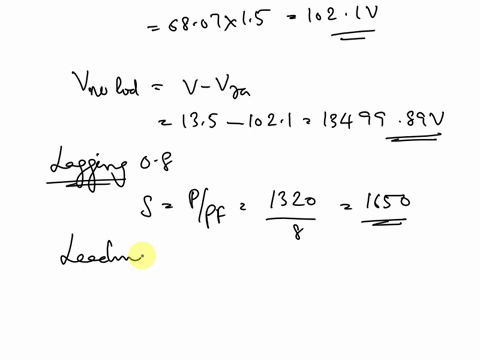 = 68.07 x 1.5 = 102.1V
Vno lod = V - Vra
= 13.5 - 102.1 = 13499.89V
Lagging 0.8
S = P/pf = 1320/8 = 1650
Leadin